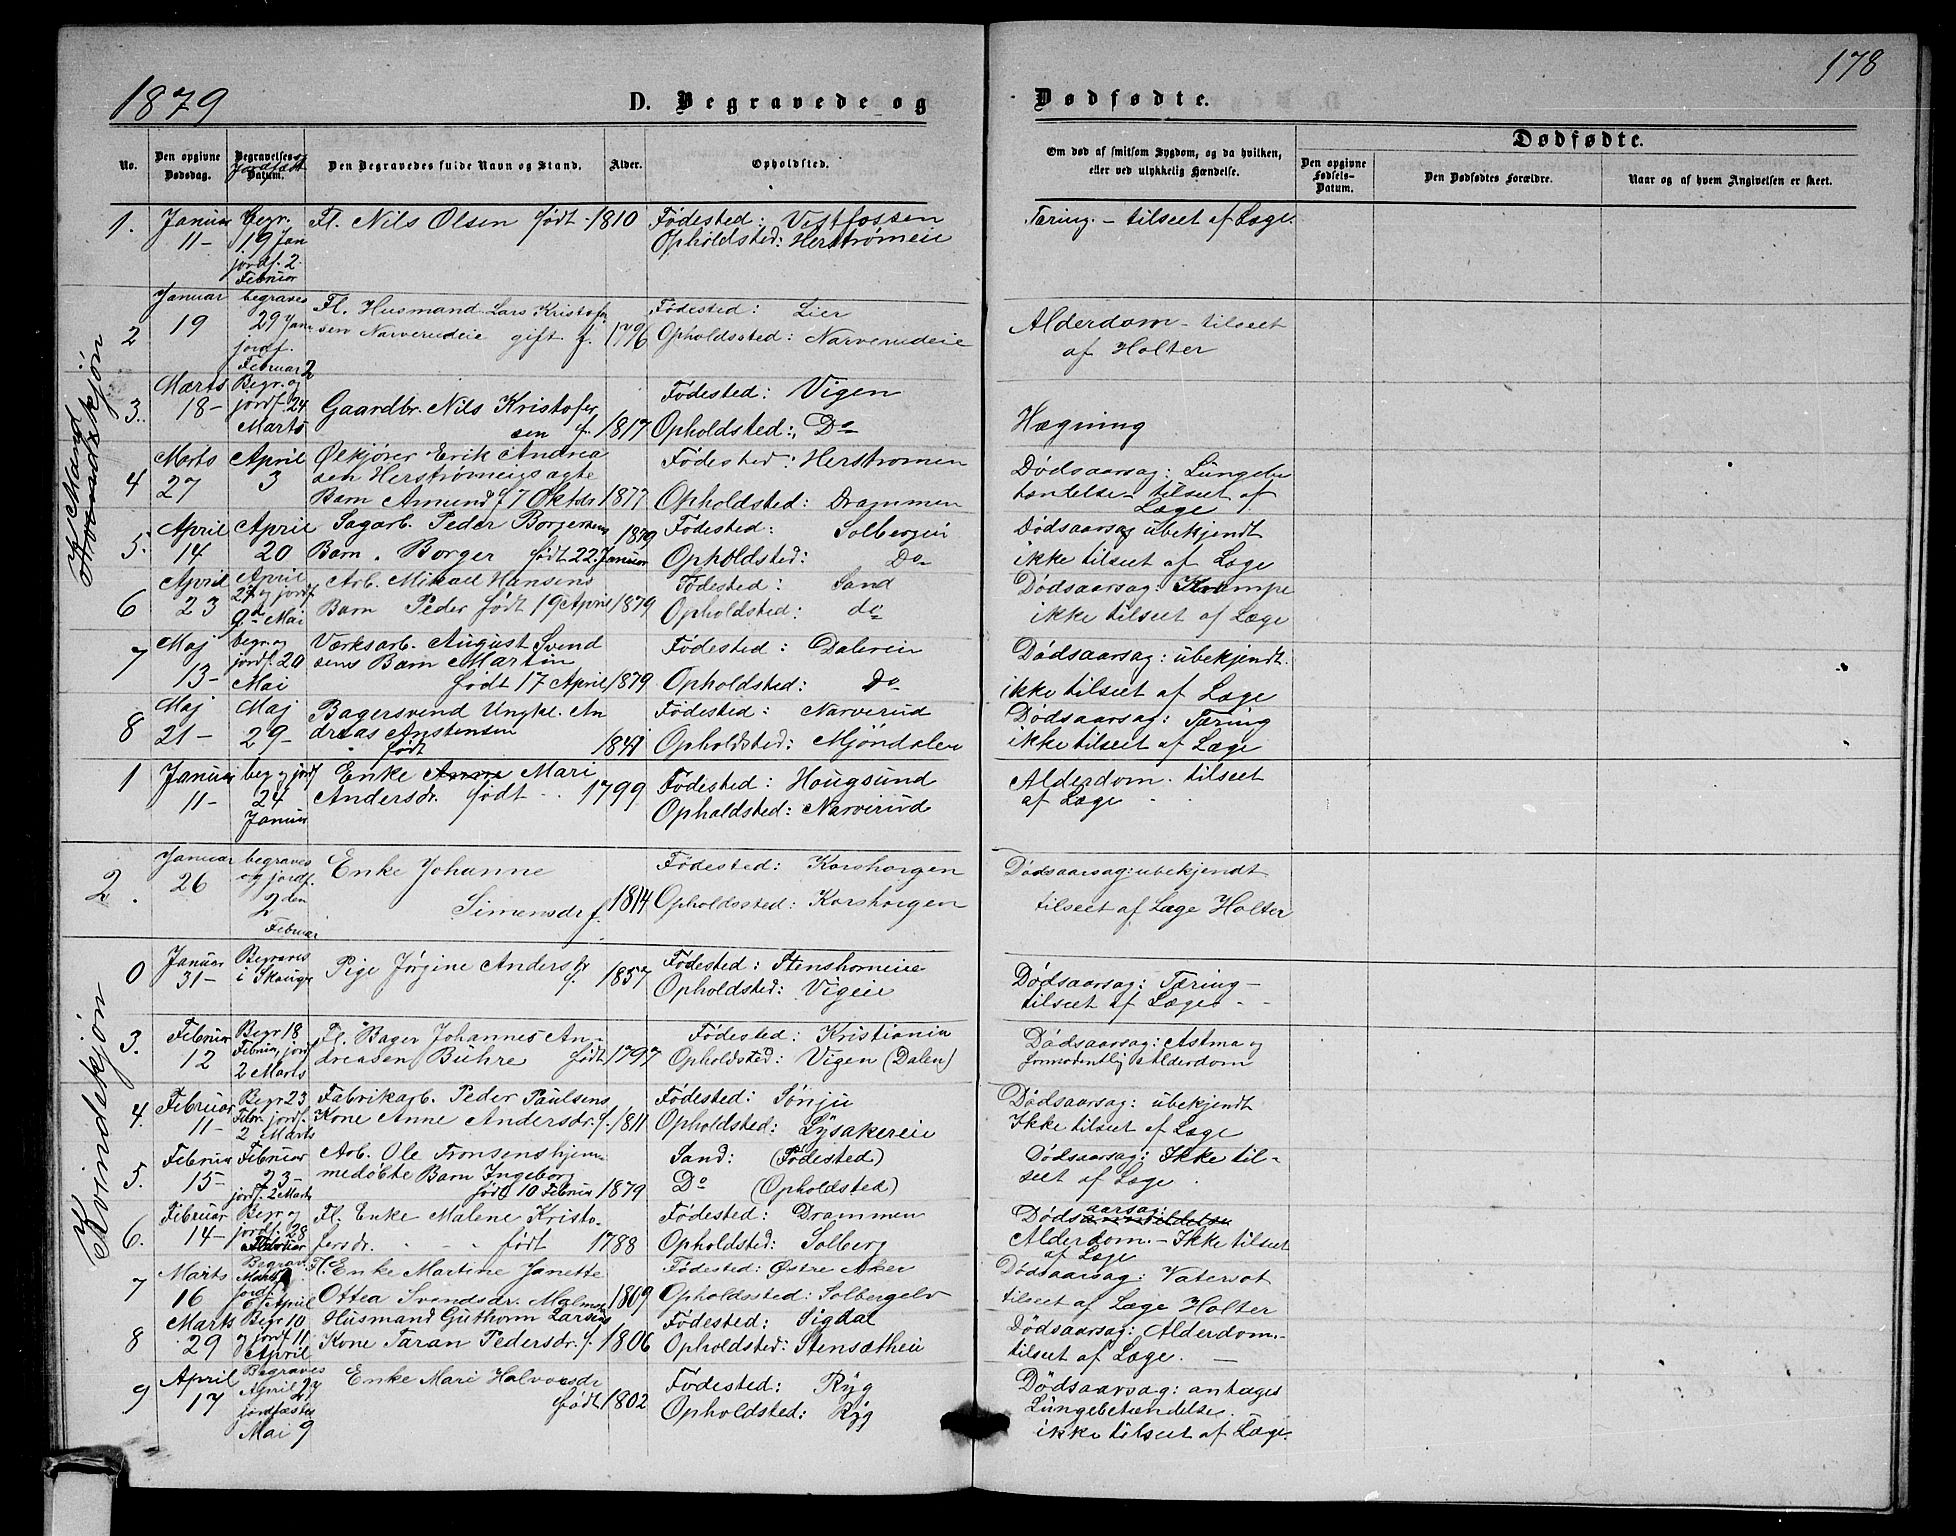 1879
D. Begravede og
Dødfødte.
178
No.
Den opgivne Dødsdag.
Begravelses og Jordfæst Datum.
Den Begravedes fulde Navn og Stand.
Alder.
Opholdsted.
Om død af smitsom Sygdom, og da hvilken, eller ved ulykkelig Hændelse.
Dødfødte.
Den opgivne Fødsels-Datum.
Den Dødfødtes Forældre.
Naar og af hvem Angivelsen er skeet.
Mandkjøn
1. Januar 11- Begr. 19 Jan jordf. 2 Februar Fl. Nils Olsen født 1810 Fødested: Vestfossen Opholdsted: Herstrømeie Tæring. - tilseet af Læge.
2 Januar 19 begraves 29 Jan jordf. Februar 2 Fl. Husmand Lars Kristofersen Narverudeie gift f. 1796 Fødested: Lier Opholdssted: Narverudeie Alderdom - tilseet af Holter
3. Marts 18- Begr. og jordf. 24 Marts Gaardbr. Nils Kristofersen f. 1817 Fødested: Vigen Opholdsted: Do Hægning
4 Marts 27 April 3 Ølkjører Erik Andreasen Herstrømeies ægte Barn Amund f 7 Oktbr 1877 Fødested: Herstrømen Opholdsted: Drammen Dødsaarsag: Lungebetændelse - tilseet af Læge.
5. April 14 April 20 Sagarb. Peder Borgersens Barn. Borger født 22. Januar 1879 Fødested: Solbergeie Opholdsted: Do Dødsaarsag ubekjendt ikke tilseet af Læge
6 April 23 April 27 og jordf 9de Mai Arb. Mikael Hansens Barn Peder født 19 April 1879 Fødested: Sand Opholdsted: do Dødsaarsag: Krampe ikke tilseet af Læge
7 Maj 13- begr. og jordf. 20 Mai Værksarb. August Svendsens Barn Martin født 17 April 1879 Fødested: Dalereie Opholdsted: Do Dødsaarsag: ubekjendt. ikke tilseet af Læge
8 Maj 21- Maj 29- Bagersvend Ungkl. Andreas Anstensen født Fødested: Narverud Opholdsted: Mjøndalen Dødsaarsag: Tæring ikke tilseet af Læge
Kvindekjøn
1 Januar 11- beg og jordf 24 Januar Enke Anne Mari Andersdr. født 1799 Fødested: Hougsund Opholdsted: Narverud Alderdom. tilseet af Læge
2. Januar 26 begraves og jordf. 2 den Februar Enke Johanne Simensdr f. 1814 Fødested: Korshorgen Opholdssted: Korshorgen Dødsaarsag: ubekjendt tilseet af Læge Holter
0 Januar 31- Begraves i Skouge Pige Jørgine Andersdr f. 1857 Fødested: Stenshorneie Opholdsted: Vigeie Dødsaarsag: Tæring - tilseet af Læge -
3. Februar 12 Begr 18 Februar, jordf 2 Marts Fl. Bager Johannes Andreasen Buhre født 1797 Fødested: Kristiania Opholdsted: Vigen (Dalen) Dødsaarsag: Astma og formodentlig Alderdom
4. Februar 11- Begr 23 Febr. jordf. 2 Marts Fabrikarb. Peder Paulsens Kone Anne Andersdr. f. 1811 Fødested: Sønju Opholdsted: Lysakereie Dødsaarsag: ubekjendt Ikke tilseet af Læge
5. Februar 15- Februar 23- jordf. 2 Marts Arb. Ole Tronsens hjemmedøbte Barn Ingeborg født 10 Februar 1879 Sand: (Fødested) Do (Opholdsted) Dødsaarsag: Ikke tilseet af Læge.
6. Februar 14- Begr og jordf. 28 Februar Fl. Enke Malene Kristofersdr. født 1788 Fødested: Drammen Opholdsted: Solberg Dødsaarsag: Alderdom. - Ikke tilseet af Læge
7 Marts 16 Begrav. Marts jordf. April Fl. Enke Martine Janette Ottea Svendsdr. Malmsen 1809 Fødested: Østre Aker Opholdssted: Solbergelv Dødsaarsag: Vatersot tilseet af Læge Holter
8 Marts 29 Begr 10 og jordf 11 April Husmand Guthorm Larsens Kone Taran Pedersdr. f. 1806 Fødested: Sigdal Opholdsted: Stensætheie Dødsaarsag: Alderdom. - tilseet af Læge. -
9 April 17 Begraves April 27 jordfæstes Mai 9 Enke Mari Halvorsdr født 1802 Fødested: Ryg Opholdsted: Ryg Dødsaarsag: antages Lungebetændelse. ikke tilseet af Læge.